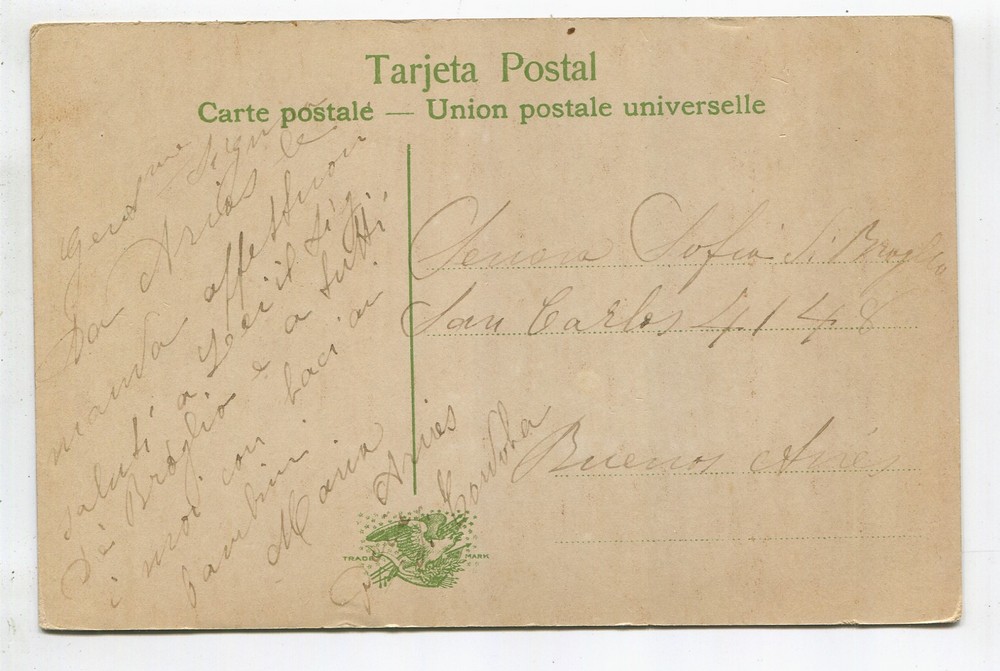 Tarjeta Postal
Carte postale — Union postale universelle
Gent.me Sign
Da Arias le
manda affettuosi
saluti a Lei il Sig.
Di Broglio e a tutti
i suoi con baci ai
bambini
Maria Arias
Cordoba
Senora Sofia Di Broglio
San Carlos 4148
Buenos Aires
TRADE MARK